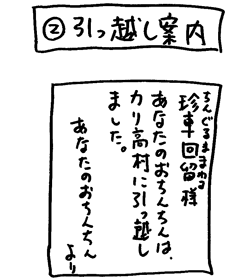 ②引っ越し案内
ちんぐるままわる
珍車回留様
あなたのおちんちんは、
カリ高村に引っ越し
ました。
あなたのおちんちん
より